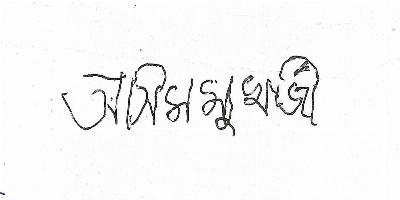 অসিম মুখার্জী